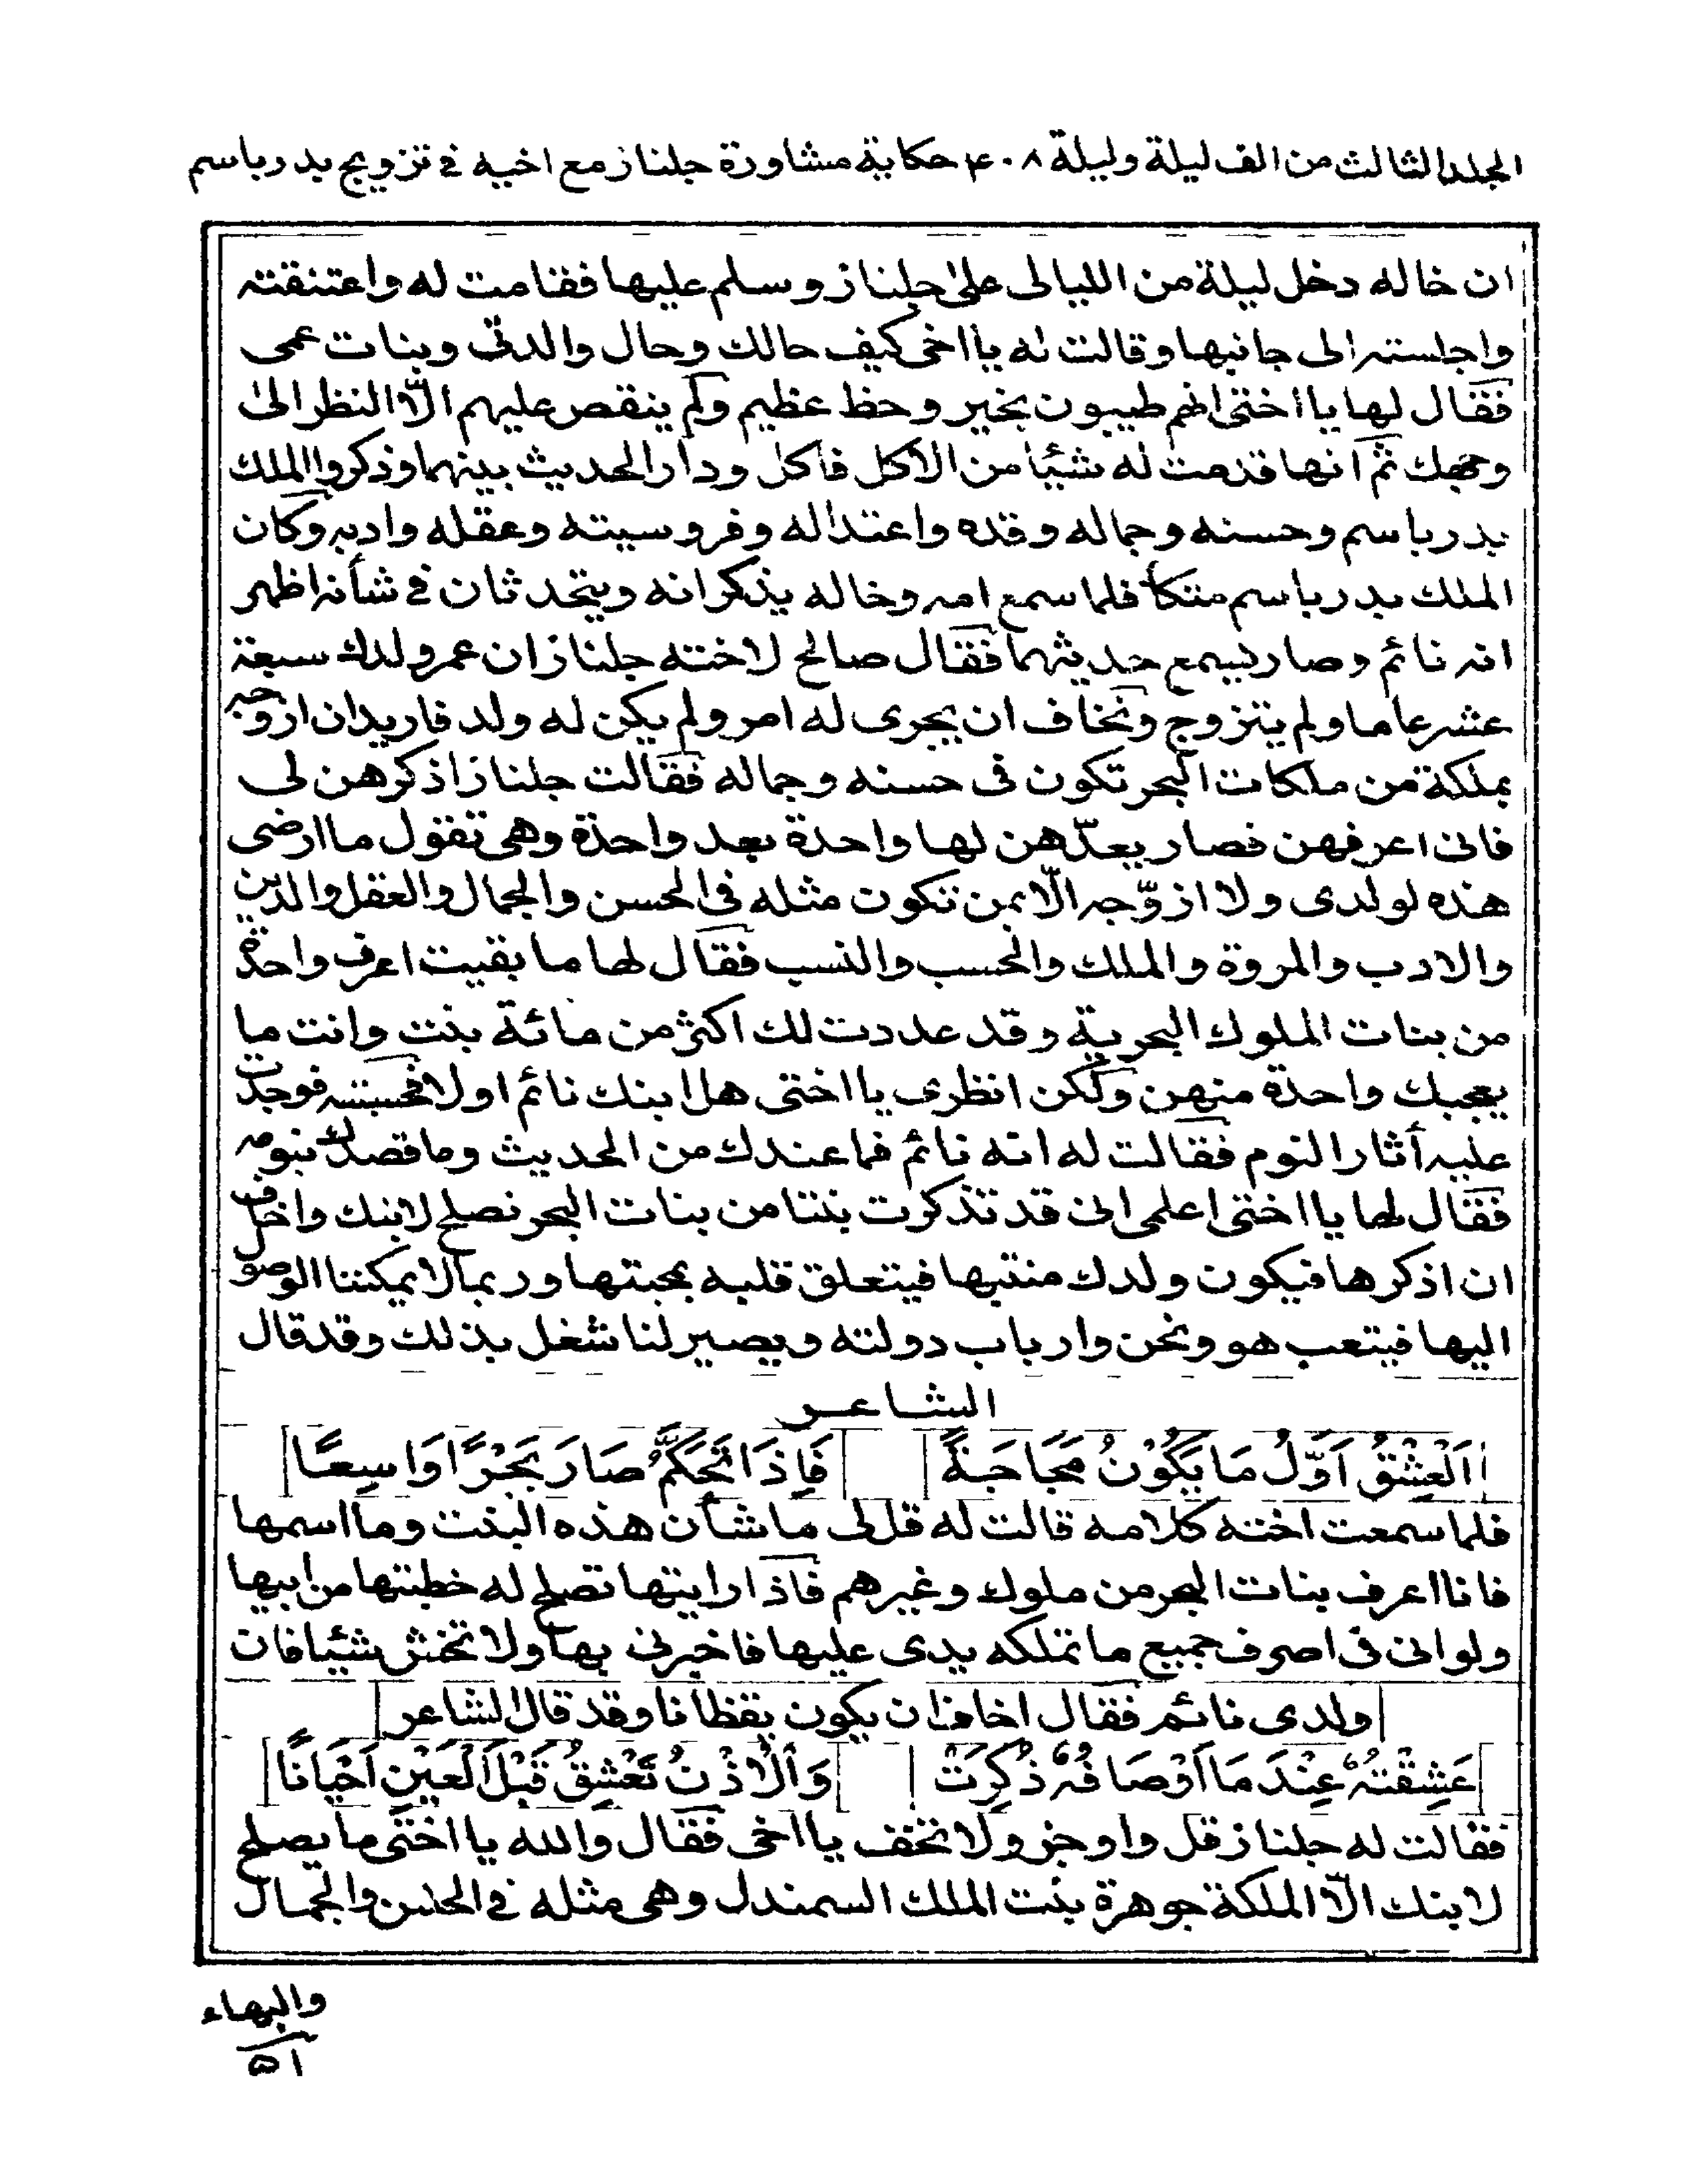 المجلد الثالث من الف ليلة وليلة ٤٠٨ حكاية مشاورة جلناز مع اخيه فى تزويج بدر باسم
ان خاله دخل ليلة من الليالى على جلناز وسلم عليها فقامت له واعتنقته
واجلسته الى جانبها وقالت له يا اخى كيف حالك وحال والدتى وبنات عمى
فقال لها يا اختى انهم طيبون بخير وحظ عظيم ولم ينقص عليهم الّا النظر الى
وجهك ثم انها قدمت له شيئا من الاكل فاكل ودار الحديث بينهما وذكروا الملك
بدر باسم وحسنه وجماله وقده واعتداله وفروسيته وعقله وادبه وكان
الملك بدر باسم متكأ فلما سمع امه وخاله يذكرانه ويتحدثان فى شأنه اظهر
انه نائم وصار يسمع حديثهما فقال صالح لاخته جلناز ان عمر ولدك سبعة
عشر عاما ولم يتزوج ونخاف ان يجرى له امر ولم يكن له ولد فاريد ان ازوجه
بملكة من ملكات البحر تكون فى حسنه وجماله فقالت جلناز اذكرهن لى
فانى اعرفهن فصار يعدّهن لها واحدة بعد واحدة وهى تقول ما ارضى
هذه لولدى ولا ازوّجه الّا بمن تكون مثله فى الحسن والجمال والعقل والدين
والادب والمروة والملك والحسب والنسب فقال لها ما بقيت اعرف واحدة
من بنات الملوك البحرية وقد عددت لك اكثر من مائة بنت وانت ما
يعجبك واحدة منهن ولكن انظرى يا اختى هل ابنك نائم اولا فجسته فوجدت
عليه أثار النوم فقالت له انه نائم فما عندك من الحديث وما قصدك بنومه
فقال لها يا اختى اعلمى انى قد تذكرت بنتا من بنات البحر تصلح لابنك واخاف
ان اذكرها فيكون ولدك منتبها فيتعلق قلبه بمحبتها وربما لا يمكننا الوصول
اليها فيتعب هو ونحن وارباب دولته ويصير لنا شغل بذلك وقد قال
الشاعر
اَلْعِشْقُ اَوَّلُ مَا يَكُوْنُ مَجَاجَةً فَاِذَا تَحَكَّمَ صَارَ بَحْرًا وَاسِعًا
فلما سمعت اخته كلامه قالت له قل لى ما شأن هذه البنت وما اسمها
فانا اعرف بنات البحر من ملوك وغيرهم فاذا رايتها تصلح له خطبتها من ابيها
ولو انى اصرف جميع ما تملكه يدى عليها فاخبرنى بها ولا تخش شيئا فان
ولدى نائم فقال اخاف ان يكون يقظانا وقد قال الشاعر
عَشِقْتُهُ عِنْدَ مَا اَوْصَافُهُ ذُكِرَتْ وَالْاُذْنُ تَعْشِقُ قَبْلَ الْعَيْنِ اَحْيَانًا
فقالت له جلناز قل واوجز ولا تخف يا اخى فقال والله يا اختى ما يصلح
لابنك الّا الملكة جوهرة بنت الملك السمندل وهى مثله فى الحسن والجمال
والبهاء
٥١